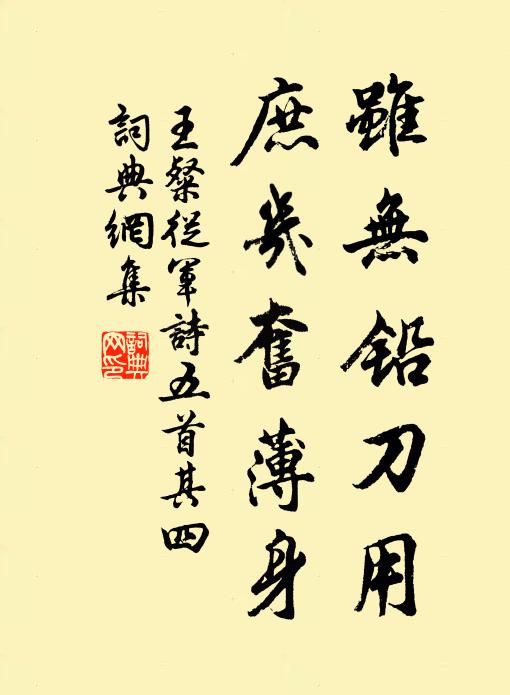 雖無鉛刀用
庶幾奮薄身
王粲從軍詩五首其四
詞典網集
詞典網印